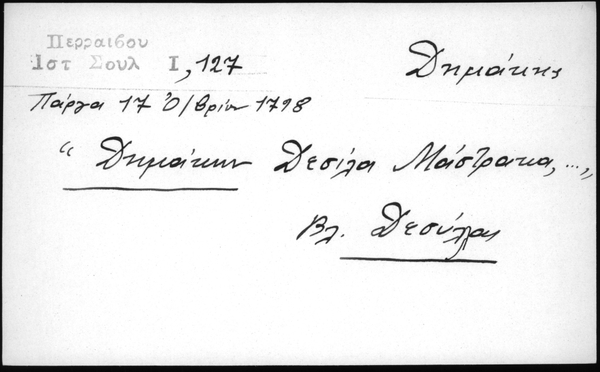 Περραιβου
Ιστ Σουλ Ι, 127
Δημάκης
Πάργα 17 Ὀ/βρίου 1798
“Δημάκην Δεσίλα Μάστρακα, ...„
Βλ. Δεσύλλας